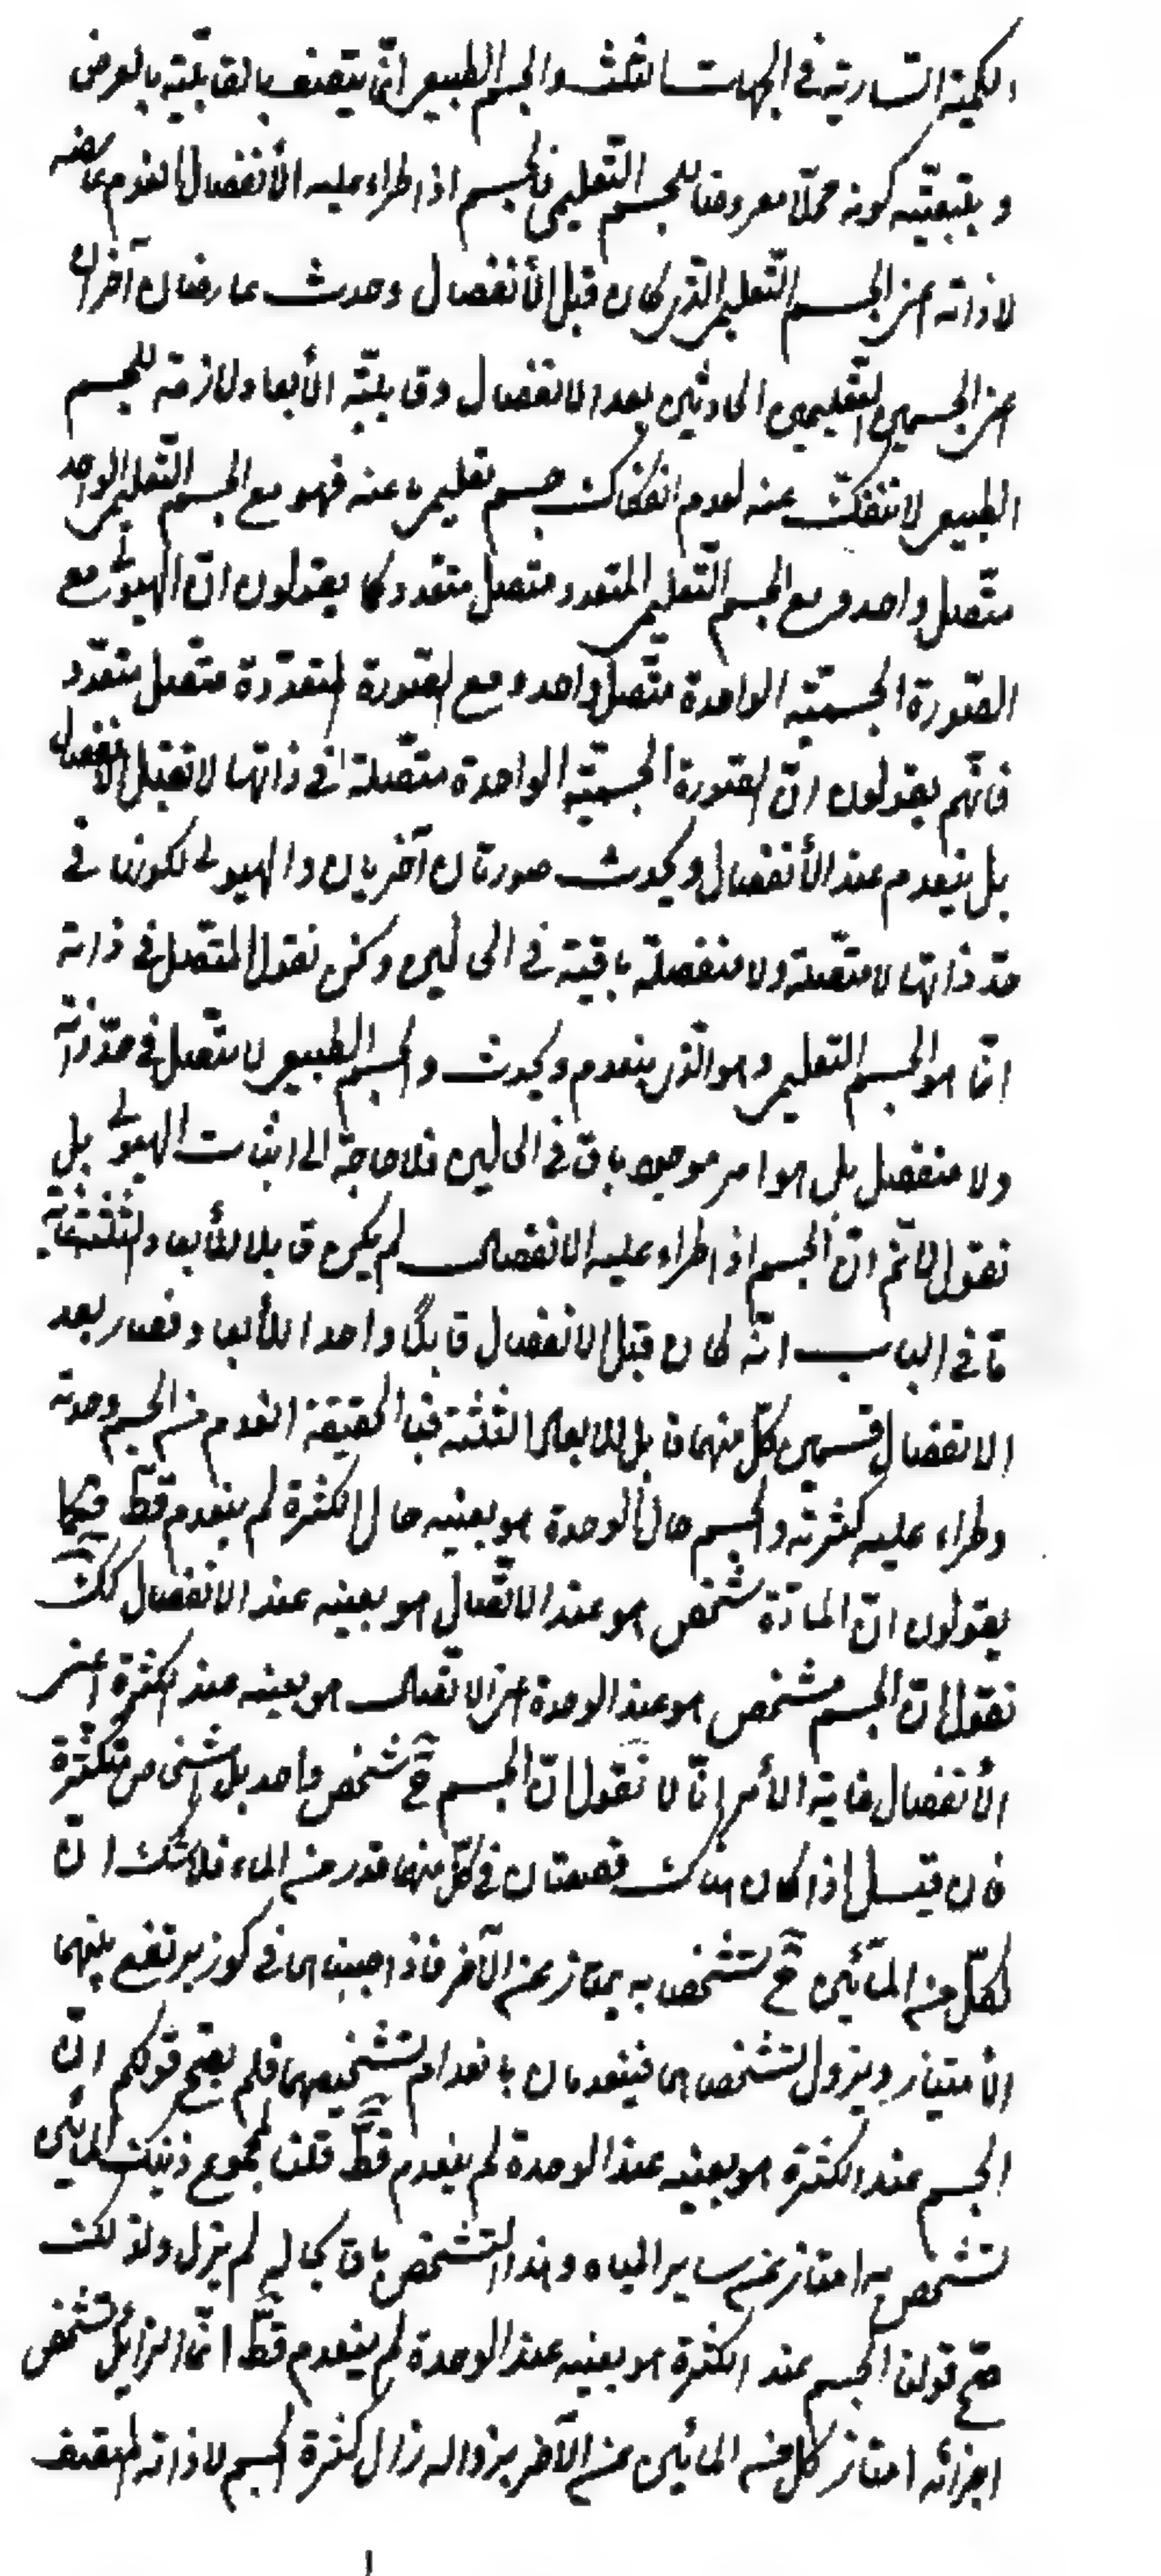 الكمية السارية في الجهات الثلث والجسم الطبيعي انما يتصف بالقابلية بالعرض
و بتبعيته كونه محلا معروضا للجسم التعليمي فالجسم اذا طراء عليه الأنفصال انعدم عارضه
لا ذاته اعني الجسم التعليمي الذي كان قبل الأنفصال وحدث عارضان آخران
اعني الجسمين التعليميين الحادثين بعد الانفصال وقابلية الأبعاد لازمة للجسم
الطبيعي لا تنفكّ عنه لعدم انفكاك جسم تعليمي ما عنه فهو مع الجسم التعليمي الواحد
متّصل واحد ومع الجسم التّعليمي المتعدد متصل متعدد كما يقولون انّ الهيولى مع
الصّورة الجسميّة الواحدة متّصل واحد ومع الصّورة المتعدّدة متصل متعدّد
فانّهم يقولون انّ الصّورة الجسميّة الواحدة متّصلة في ذاتها لا تقبل الانفصال
بل ينعدم عند الأنفصال ويحدث صورتان آخريان والهيولى لكونها في
حدّ ذاتها لا متّصلة ولا منفصلة باقية في الحالين ونحن نقول المتّصل في ذاته
انّما هو الجسم التعليمي وهو الّذي ينعدم ويحدث والجسم الطبيعي لا متّصل في حدّ ذاته
ولا منفصل بل هو امر موجود باق في الحالين فلا حاجة الى اثبات الهيولى بل
نقول لا نم انّ الجسم اذا طراء عليه الانفصال لم يكن قابلا للأبعاد الثلثة غاية
ما في الباب انّه كان قبل الانفصال قابلًا واحدا للأبعاد فصار بعد
الانفصال قسمين كلّ منهما قابل للابعاد الثلثة فبالحقيقة انعدم من الجسم وحدته
وطراء عليه كثرته والجسم حال الوحدة هو بعينه حال الكثرة لم ينعدم قطّ فكما
يقولون انّ المادّة شخص هو عند الاتّصال هو بعينه عند الانفصال كك
نقول انّ الجسم مشخص هو عند الوحدة اعني الاتّصال هو بعينه عند الكثرة اعني
الأنفصال غاية الأمر انّا لا نقول انّ الجسم ح شخص واحد بل اشخاص متكثرة
فان قيل اذا كان هناك قصعتان في كلّ منهما قدر من الماء فلا شك انّ
لكلّ من المائين ح تشخص به يمتاز عن الآخر فاذا صببناهما في كوز يرتفع بينهما
الأمتياز ويزول تشخصاهما فينعدمان بانعدام تشخصيهما فلم يصحّ قولكم انّ
الجسم عند الكثرة هو بعينه عند الوحدة لم ينعدم قطّ قلنا لمجموع ذينك المائين
تشخص به امتاز عن ساير المياه وهذا التشخص باق بحاله لم يزل ولذلك
صحّ قولنا الجسم عند الكثرة هو بعينه عند الوحدة لم ينعدم قطّ انّما الزايل تشخص
اجزائه امتاز كل من المائين عن الآخر بزواله زال كثرة الجسم لا ذاته المتصف